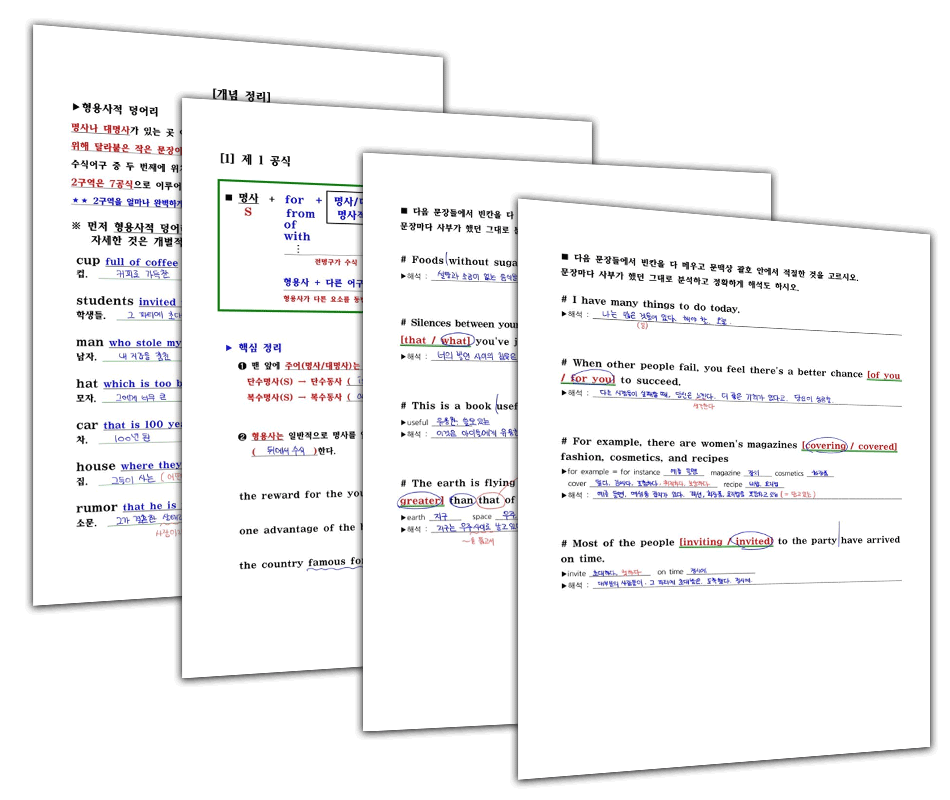 ▶형용사적 덩어리
명사나 대명사가 있는 곳
위해 달라붙은 작은 문장이
수식어구 중 두 번째에 위
2구역은 7공식으로 이루어
★★ 2구역을 얼마나 완벽하게
※ 먼저 형용사적 덩어
자세한 것은 개별적
cup full of coffee
컵. 커피로 가득찬
students invited
학생들. 그 파티에 초대
man who stole my
남자. 내 지갑을 훔친
hat which is too b
모자. 그에게 너무 큰
car that is 100 ye
차. 100년 된
house where they
집. 그들이 사는
rumor that he is
소문. 그가 결혼한 상태
[개념 정리]
[1] 제 1 공식
■ 명사 + for + 명사/대
S from 명사적
of
with
⋮
전명구가 수식
형용사 + 다른 어구
형용사가 다른 요소를 동
▶ 핵심 정리
❶ 맨 앞에 주어(명사/대명사)는
단수명사(S) → 단수동사 (
복수명사(S) → 복수동사 (
❷ 형용사는 일반적으로 명사를
( 뒤에서 수식 )한다.
the reward for the you
one advantage of the
the country famous fo
■ 다음 문장들에서 빈칸을 다
문장마다 사부가 했던 그대로
# Foods without suga
▶해석 : 설탕과 소금이 없는 음식들
# Silences between your
[that / what] you've j
▶해석 : 너의 발언 사이의 침묵은
# This is a book usef
▶useful 유용한, 쓸모있는
▶해석 : 이것은 아이들에게 유용한
# The earth is flying
greater] than that of
▶earth 지구 space 우주
▶해석 : 지구는 우주
■ 다음 문장들에서 빈칸을 다 메우고 문맥상 괄호 안에서 적절한 것을 고르시오.
문장마다 사부가 했던 그대로 분석하고 정확하게 해석도 하시오.
# I have many things to do today.
▶해석 : 나는 많은 것들이 있다. 해야 할, 오늘.
# When other people fail, you feel there's a better chance [of you
/ for you] to succeed.
▶해석 : 다른 사람들이 실패할 때, 당신은 느낀다. 더 좋은 기회가 있다고. 당신이 성공할.
생각한다
# For example, there are women's magazines [covering / covered]
fashion, cosmetics, and recipes
▶for example = for instance 예를 들면 magazine 잡지 cosmetics 화장품
cover 덮다, 감싸다, 포함하다, 취급하다, 보도하다 recipe 비법, 요리법
▶해석 : 예를 들면, 여성용 잡지가 있다. 패션, 화장품, 요리법을 포함하고 있는
# Most of the people [inviting / invited] to the party have arrived
on time.
▶invite 초대하다, 청하다 on time 정시에
▶해석 : 대부분의 사람들이, 그 파티에 초대받은. 도착했다. 정시에.